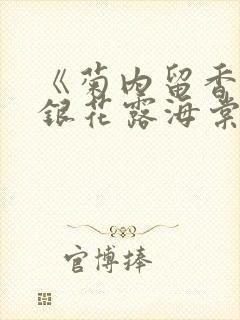 《菊内留香
银花露海棠
官博捧